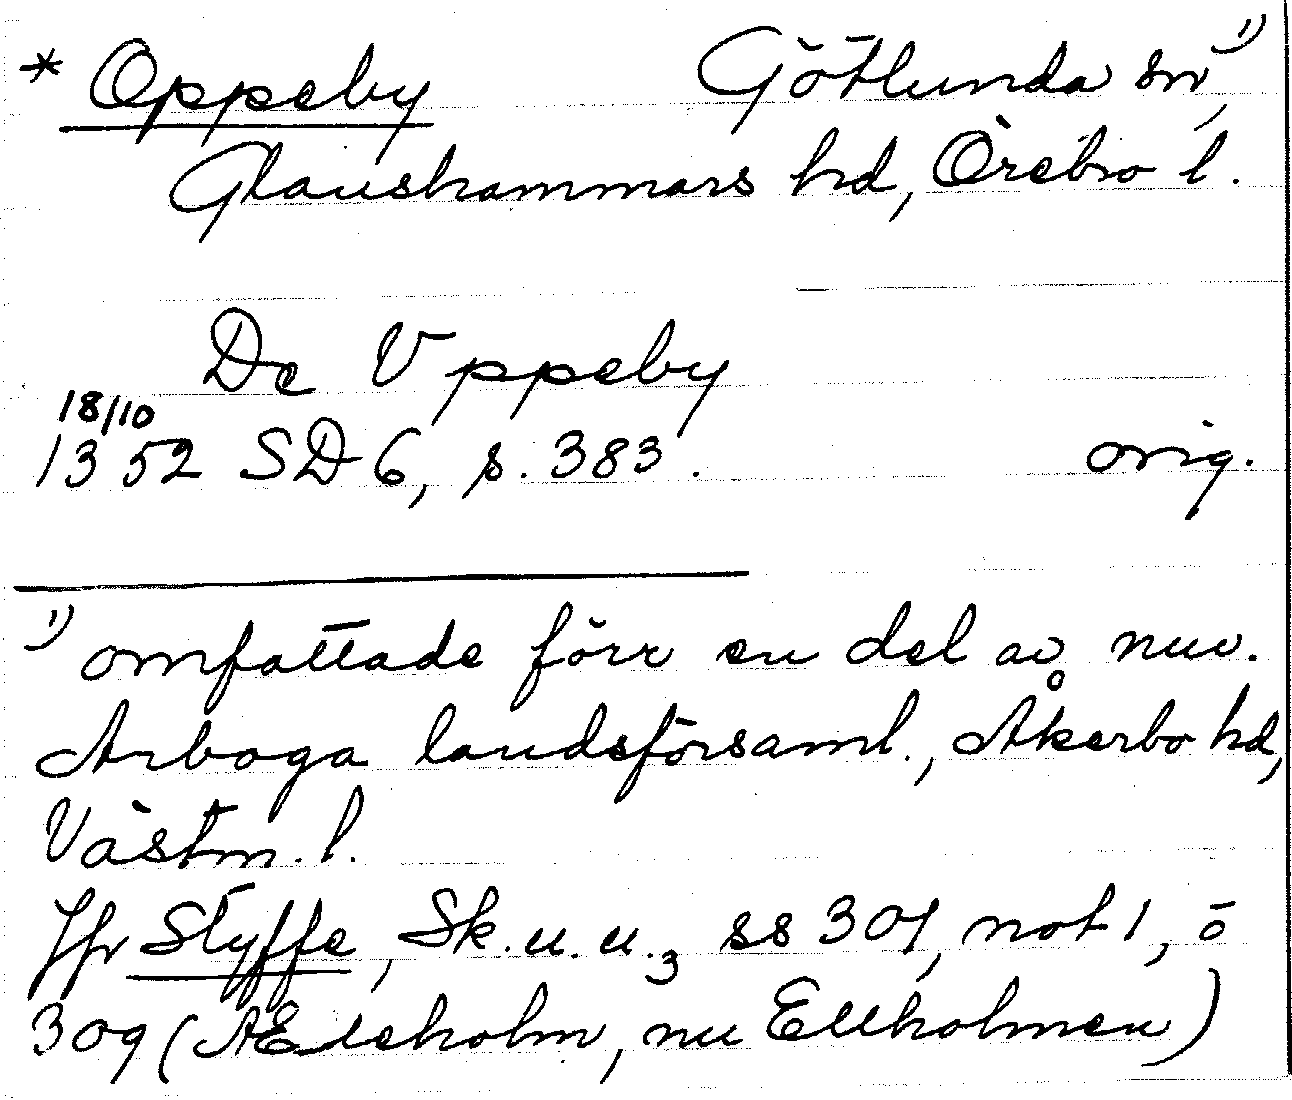 * Oppeby Götlunda sn, 1)
Glanshammars hd, Örebro l.
De Vppeby
18/10
1352 SD 6, s. 383. orig.
1) omfattade förr en del av nuv.
Arboga landsförsaml., Åkerbo hd,
Västm. l.
Jfr Styffe, Sk. u. u. 3 ss 301, not 1, o
309 (Æleholm, nu Ellholmen)